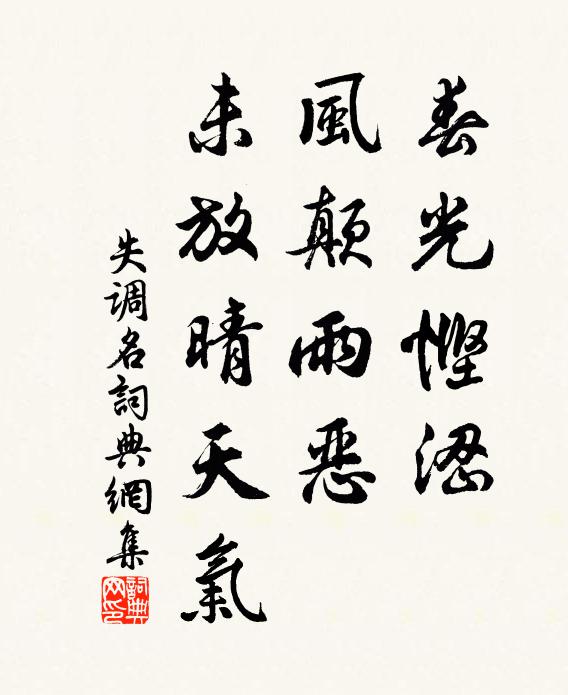 春光慳澀
風顛雨惡
未放晴天氣
失调名詞典網集
詞典网印